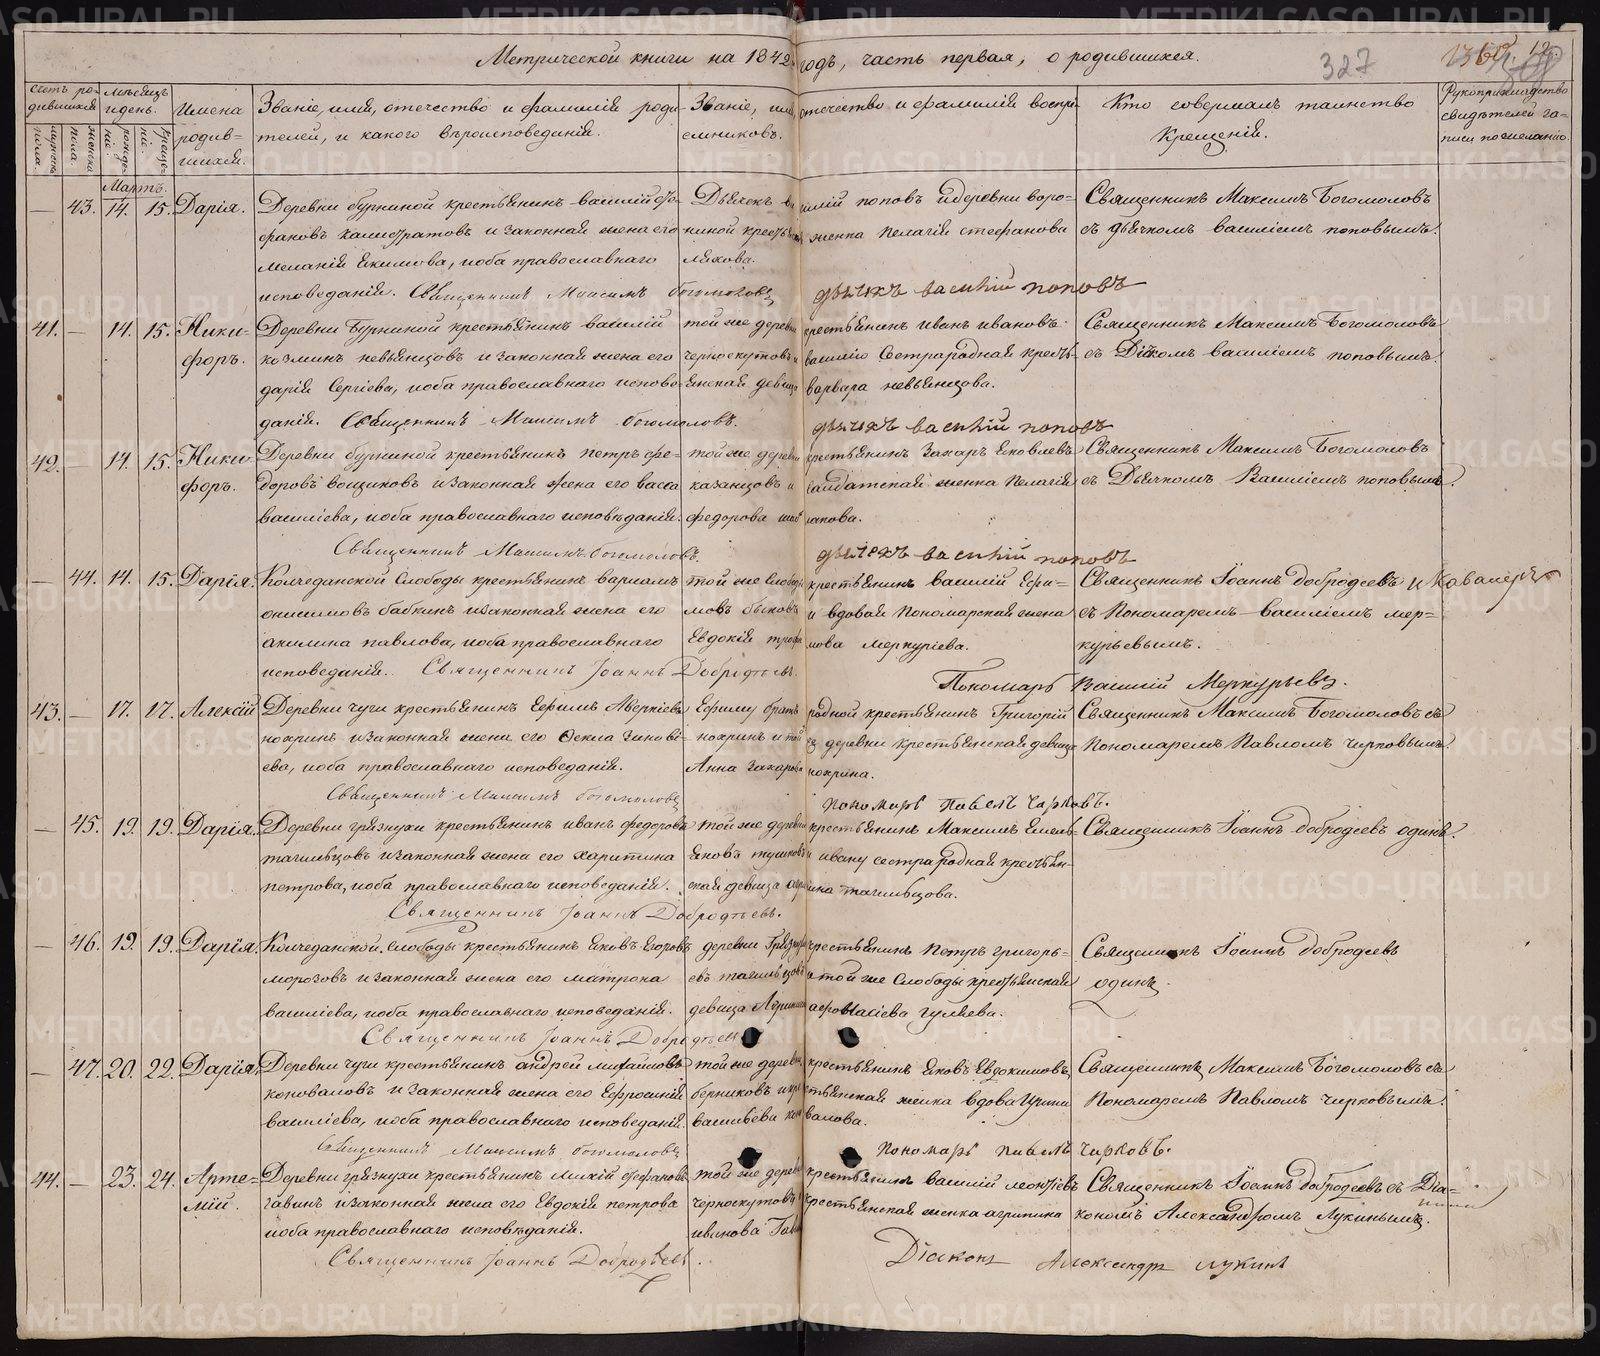 Метрической книги на 1842 годъ, часть первая, о родившихся.
327
Счетъ родившихся
мѣсяцъ и день.
Имена родившихся.
Званіе, имя, отечество и фамилія родителей, и какого вѣроисповеданія.
Званіе, имя, отечество и фамилія воспріемниковъ.
Кто совершалъ таинство Крещенія.
Рукоприкладство свидѣтелей записи по желанію.
мужеска пола.
женска пола.
рожденія.
крещенія.
Мартъ.
— 43. 14. 15. Дарія.
Деревни бурниной крестьянинъ василій
фановъ калистратовъ и законная жена его
меланія Екимова, иоба православнаго
исповеданія. Священникъ Максимъ богомоловъ
Дьячокъ василій поповъ и деревни воро=
ниной крестьянская женка пелагія стефанова
ляхова.
дьячокъ василій поповъ
Священникъ Максимъ Богомоловъ
съ дьячкомъ василіемъ поповымъ.
41. — 14. 15. Ники=
форъ.
Деревни Бурниной крестьянинъ василій
козминъ невьянцовъ и законная жена его
дарія Сергіева, иоба православнаго испове
данія. Священникъ Максимъ богомоловъ.
той же деревни крестьянинъ иванъ ивановъ
черноскутовъ и василію сестра родная кресть=
янская девица варвара невьянцова.
дьячокъ василій поповъ
Священникъ Максимъ Богомоловъ
съ Дьячкомъ василіемъ поповымъ.
42. — 14. 15. Ники=
форъ.
Деревни бурниной крестьянинъ петръ фе=
доровъ вощиковъ и законная жена его васса
василіева, иоба православнаго исповѣданія.
Священникъ Максимъ богомоловъ.
той же деревни крестьянинъ Захаръ Яковлевъ
казанцовъ и салдатская женка пелагія
федорова
дьячокъ василій поповъ
Священникъ Максимъ Богомоловъ
съ Дьячкомъ Василіемъ поповымъ.
— 44. 14. 15. Дарія.
Колчеданской Слободы крестьянинъ варламъ
онисимовъ бабкинъ и законная жена его
акилина павлова, иоба православнаго
исповеданія. Священникъ Іоаннъ Добродѣевъ.
той же слободы крестьянинъ василій Ефи=
мовъ быковъ и вдовая пономарская жена
Евдокія трофимова меркуріева.
Пономарь Василій Меркурьевъ.
Священникъ Іоаннъ добродеевъ и Кавалеръ
съ Пономаремъ василіемъ мер=
курьевымъ.
43. — 17. 17. Алексій
Деревни чуги крестьянинъ Ефимъ Аверкіевъ
нохринъ и законная жена его Фекла Зинові=
ева, иоба православнаго исповеданія.
Священникъ Максимъ богомоловъ
Ефиму братъ родной крестьянинъ Григорій
нохринъ и той же деревни крестьянская девица
Анна Захарова нохрина.
пономарь павелъ Чирковъ.
Священникъ Максимъ Богомоловъ съ
Пономаремъ Павломъ чирковымъ.
— 45. 19. 19. Дарія.
Деревни грязнухи крестьянинъ иванъ федоровъ
тагильцовъ и законная жена его харитина
петрова, иоба православнаго исповеданія.
Священникъ Іоаннъ Добродѣевъ.
той же деревни крестьянинъ Максимъ Емель=
яновъ и ивану сестра родная крестьян=
ская девица тагильцова.
Священникъ Іоаннъ добродеевъ одинъ.
— 46. 19. 19. Дарія.
Колчеданской слободы крестьянинъ Яковъ Егоровъ
морозовъ и законная жена его матрона
василіева, иоба православнаго исповеданія.
Священникъ Іоаннъ Добродѣевъ
деревни Грязнухи крестьянинъ Петръ григорь=
евъ тагильцовъ и той же слободы крестьянская
девица афонасіева гуляева.
Священникъ Іоаннъ добродеевъ
одинъ.
— 47. 20. 22. Дарія.
Деревни чуги крестьянинъ андрей михайловъ
коноваловъ и законная жена его Ефросинія
василіева, иоба православнаго исповеданія.
Священникъ Максимъ богомоловъ
той же деревни крестьянинъ Яковъ Евдокимовъ
берниковъ и крестьянская женка вдова Ирина
васильева коновалова.
пономарь павелъ чирковъ.
Священникъ Максимъ Богомоловъ съ
Пономаремъ Павломъ чирковымъ.
44. — 23. 24. Арте=
мій.
Деревни грязнухи крестьянинъ михей фефановъ
гавинъ и законная жена его Евдокія петрова
иоба православнаго исповѣданія.
Священникъ Іоаннъ Добродѣевъ.
той же деревни крестьянинъ василій леонтіевъ
черноскутовъ крестьянская женка агрипина
иванова
Діаконъ Александръ лукинъ
Священникъ Іоаннъ добродеевъ съ Діа=
кономъ Александромъ Лукинымъ.
METRIKI.GASO-URAL.RU